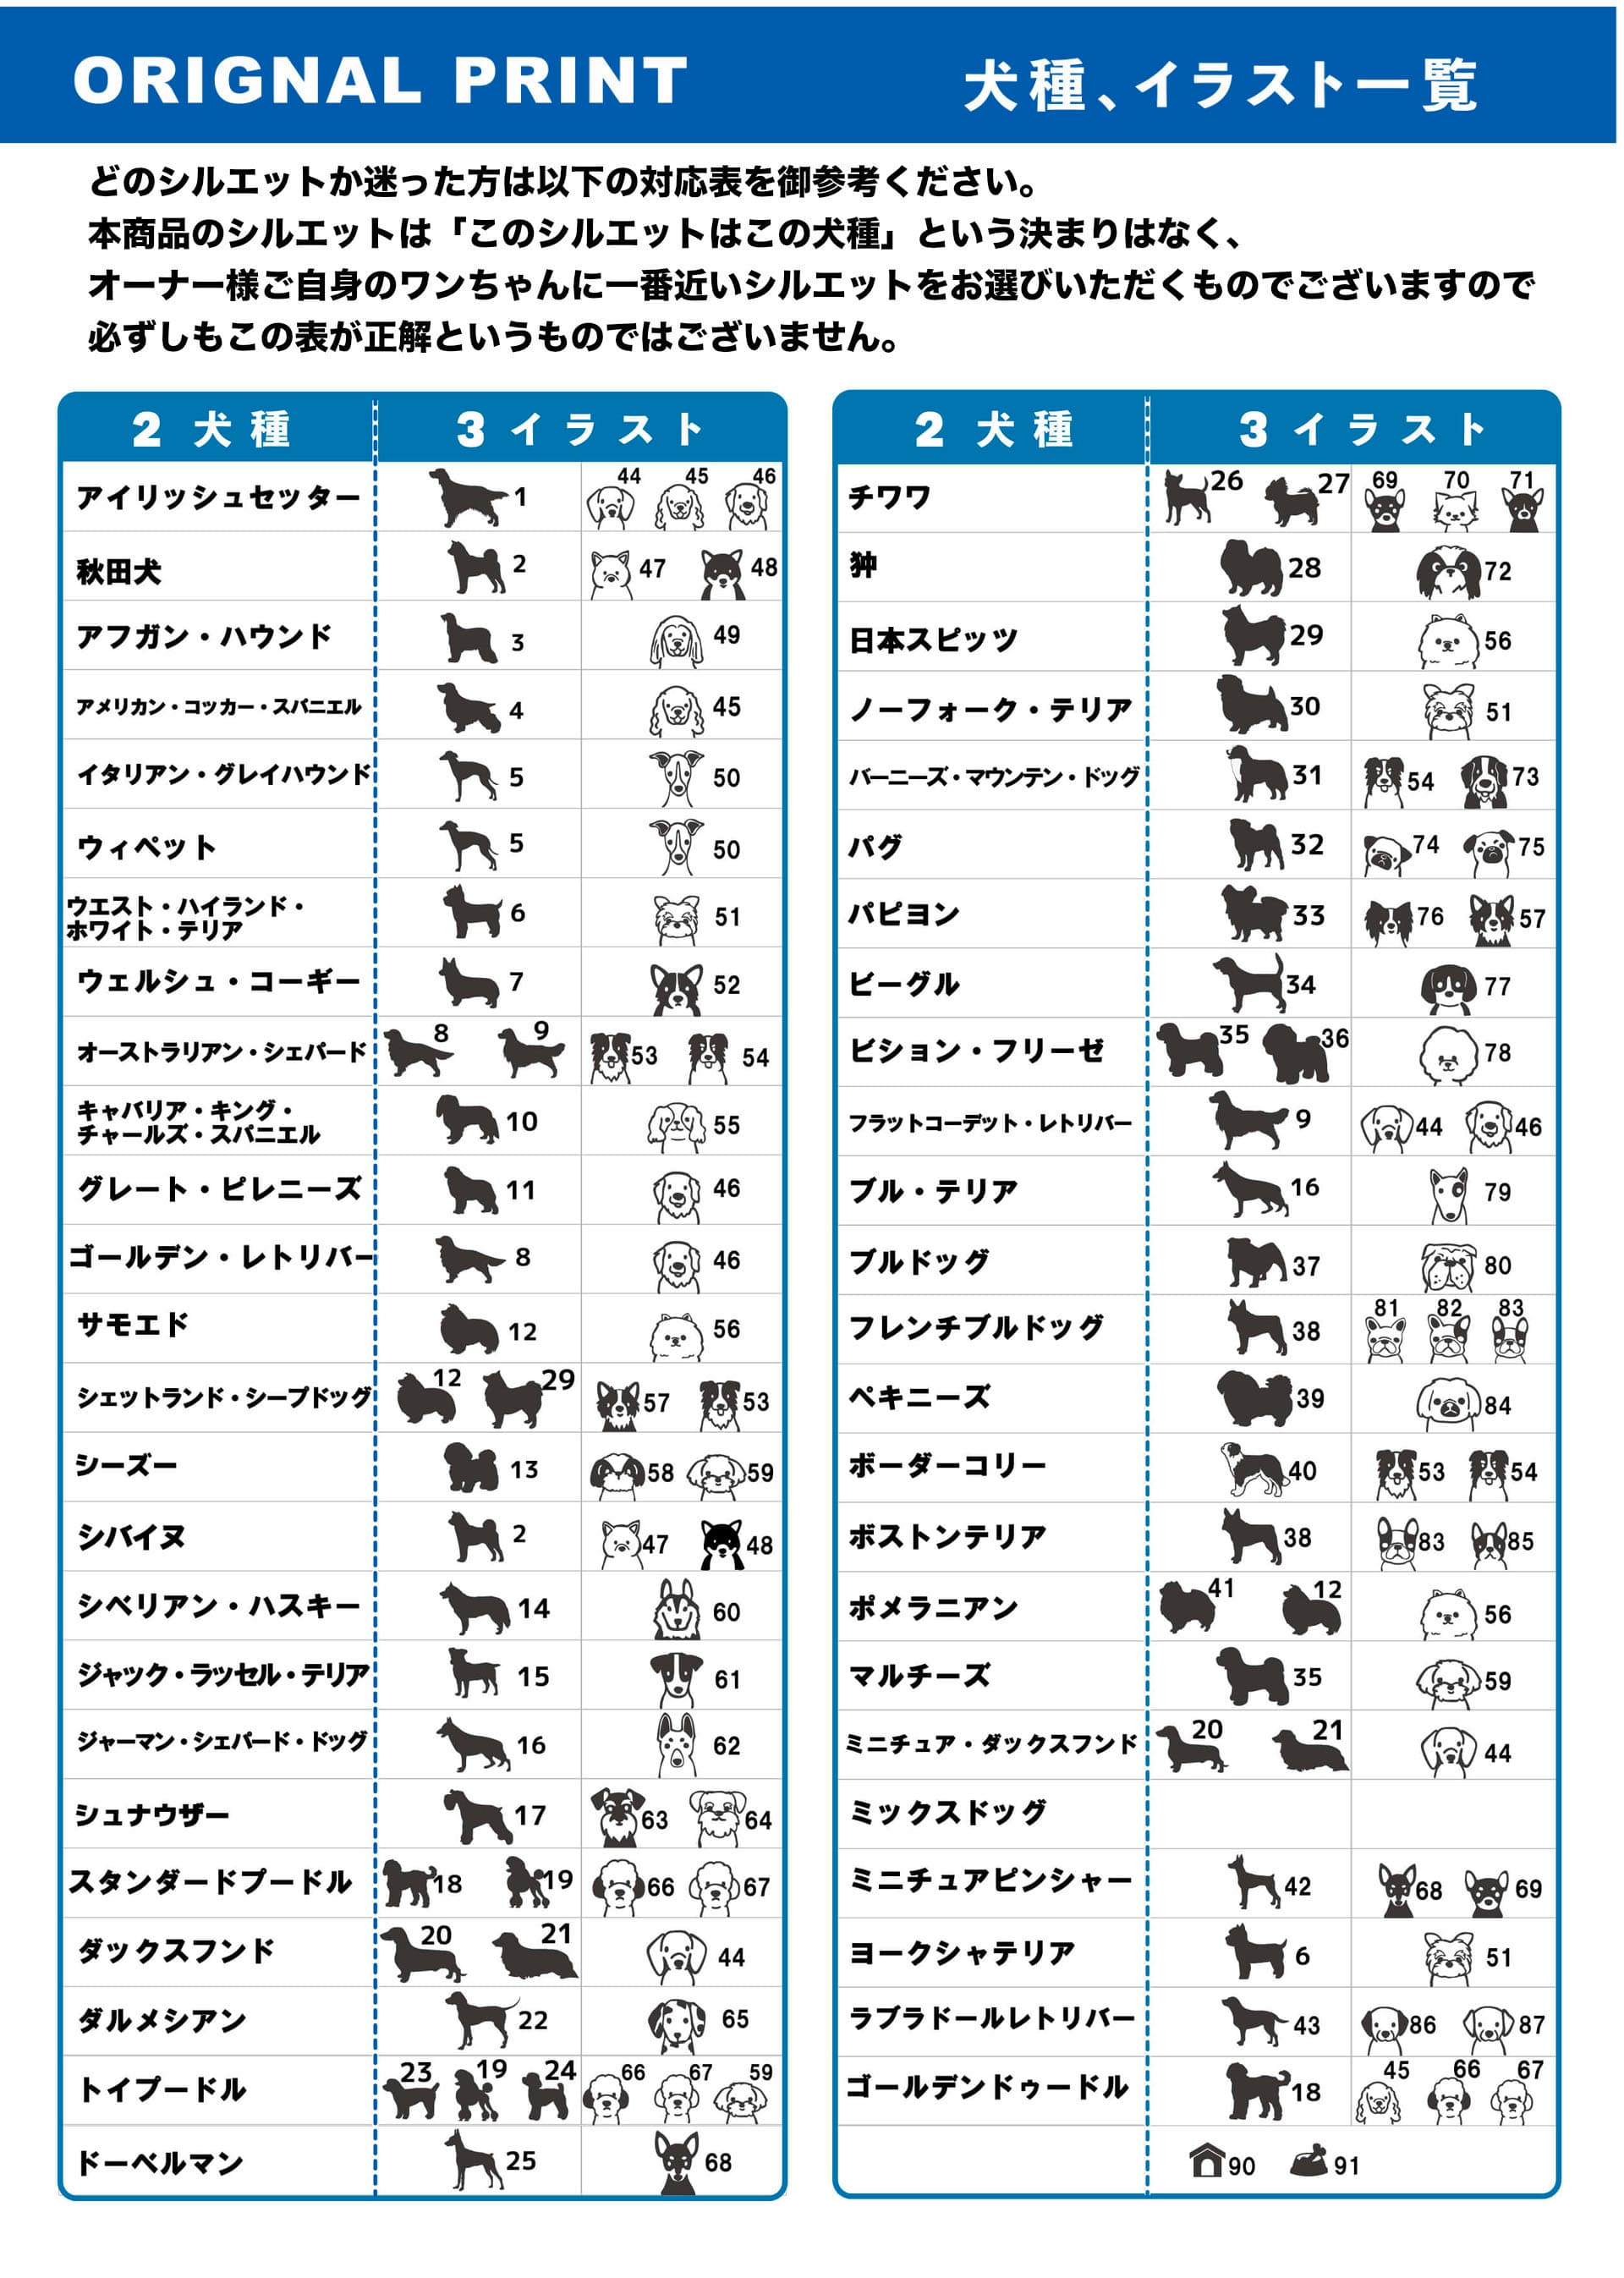 ORIGNAL PRINT
犬種、イラスト一覧
どのシルエットか迷った方は以下の対応表を御参考ください。
本商品のシルエットは「このシルエットはこの犬種」という決まりはなく、
オーナー様ご自身のワンちゃんに一番近いシルエットをお選びいただくものでございますので
必ずしもこの表が正解というものではございません。
2 犬種 3 イラスト
アイリッシュセッター 1 44 45 46
秋田犬 2 47 48
アフガン・ハウンド 3 49
アメリカン・コッカー・スパニエル 4 45
イタリアン・グレイハウンド 5 50
ウィペット 5 50
ウエスト・ハイランド・
ホワイト・テリア 6 51
ウェルシュ・コーギー 7 52
オーストラリアン・シェパード 8 9 53 54
キャバリア・キング・
チャールズ・スパニエル 10 55
グレート・ピレニーズ 11 46
ゴールデン・レトリバー 8 46
サモエド 12 56
シェットランド・シープドッグ 12 29 57 53
シーズー 13 58 59
シバイヌ 2 47 48
シベリアン・ハスキー 14 60
ジャック・ラッセル・テリア 15 61
ジャーマン・シェパード・ドッグ 16 62
シュナウザー 17 63 64
スタンダードプードル 18 19 66 67
ダックスフンド 20 21 44
ダルメシアン 22 65
トイプードル 23 19 24 66 67 59
ドーベルマン 25 68
2 犬種 3 イラスト
チワワ 26 27 69 70 71
狆 28 72
日本スピッツ 29 56
ノーフォーク・テリア 30 51
バーニーズ・マウンテン・ドッグ 31 54 73
パグ 32 74 75
パピヨン 33 76 57
ビーグル 34 77
ビション・フリーゼ 35 36 78
フラットコーデット・レトリバー 9 44 46
ブル・テリア 16 79
ブルドッグ 37 80
フレンチブルドッグ 38 81 82 83
ペキニーズ 39 84
ボーダーコリー 40 53 54
ボストンテリア 38 83 85
ポメラニアン 41 12 56
マルチーズ 35 59
ミニチュア・ダックスフンド 20 21 44
ミックスドッグ
ミニチュアピンシャー 42 68 69
ヨークシャテリア 6 51
ラブラドールレトリバー 43 86 87
ゴールデンドゥードル 18 45 66 67
90 91